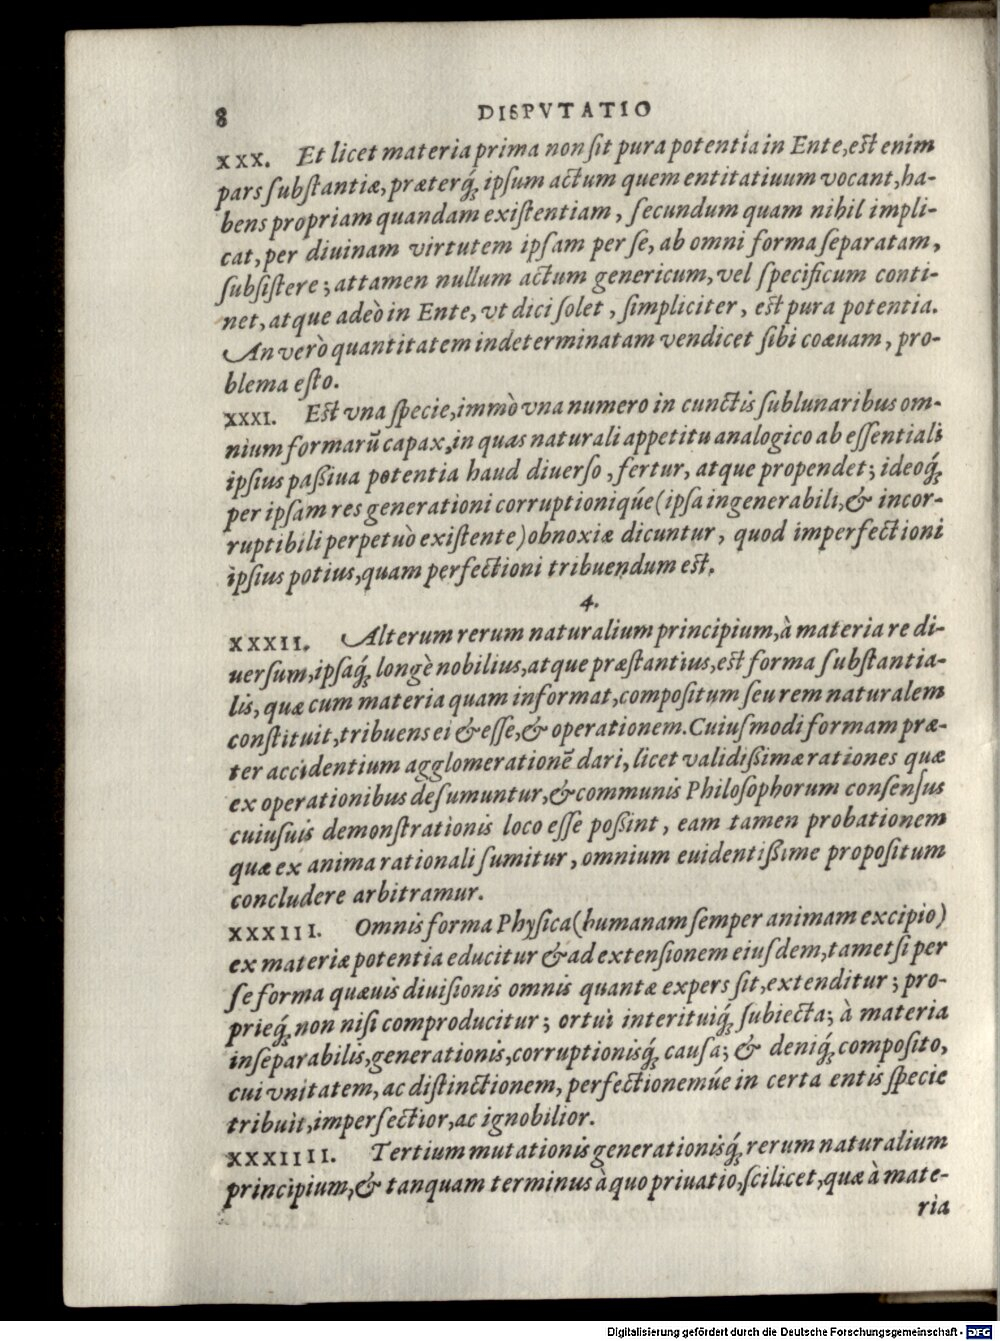 8 DISPVTATIO
XXX. Et licet materia prima non ſit pura potentia in Ente, eſt enim
pars ſubſtantiæ, præterq́; ipſum actum quem entitatiuum vocant, ha-
bens propriam quandam exiſtentiam, ſecundum quam nihil impli-
cat, per diuinam virtutem ipſam per ſe, ab omni forma ſeparatam,
ſubſiſtere; attamen nullum actum genericum, vel ſpecificum conti-
net, atque adeò in Ente, vt dici ſolet, ſimpliciter, eſt pura potentia.
An verò quantitatem indeterminatam vendicet ſibi coæuam, pro-
blema eſto.
XXXI. Eſt vna ſpecie, immò vna numero in cunctis ſublunaribus om-
nium formarū capax, in quas naturali appetitu analogico ab eſſentiali
ipſius paßiua potentia haud diuerſo, fertur, atque propendet; ideoq́;
per ipſam res generationi corruptioniq́ue (ipſa ingenerabili, & incor-
ruptibili perpetuò exiſtente) obnoxiæ dicuntur, quod imperfectioni
ipſius potius, quam perfectioni tribuendum eſt.
4.
XXXII. Alterum rerum naturalium principium, à materia re di-
uerſum, ipſaq́; longè nobilius, atque præſtantius, eſt forma ſubſtantia-
lis, quæ cum materia quam informat, compoſitum ſeu rem naturalem
conſtituit, tribuens ei & eſſe, & operationem. Cuiuſmodi formam præ-
ter accidentium agglomerationē dari, licet validißimæ rationes quæ
ex operationibus deſumuntur, & communis Philoſophorum conſenſus
cuiuſuis demonſtrationis loco eſſe poßint, eam tamen probationem
quæ ex anima rationali ſumitur, omnium euidentißime propoſitum
concludere arbitramur.
XXXIII. Omnis forma Phyſica (humanam ſemper animam excipio)
ex materiæ potentia educitur & ad extenſionem eiuſdem, tametſi per
ſe forma quæuis diuiſionis omnis quantæ expers ſit, extenditur; pro-
prieq́; non niſi comproducitur; ortui interituiq́; ſubiecta; à materia
inſeparabilis, generationis, corruptionisq́; cauſa; & deniq́; compoſito,
cui vnitatem, ac diſtinctionem, perfectionemúe in certa entis ſpecie
tribuit, imperfectior, ac ignobilior.
XXXIIII. Tertium mutationis generationisq́; rerum naturalium
principium, & tanquam terminus à quo priuatio, ſcilicet, quæ à mate-
ria
Digitalisierung gefördert durch die Deutsche Forschungsgemeinschaft - DFG